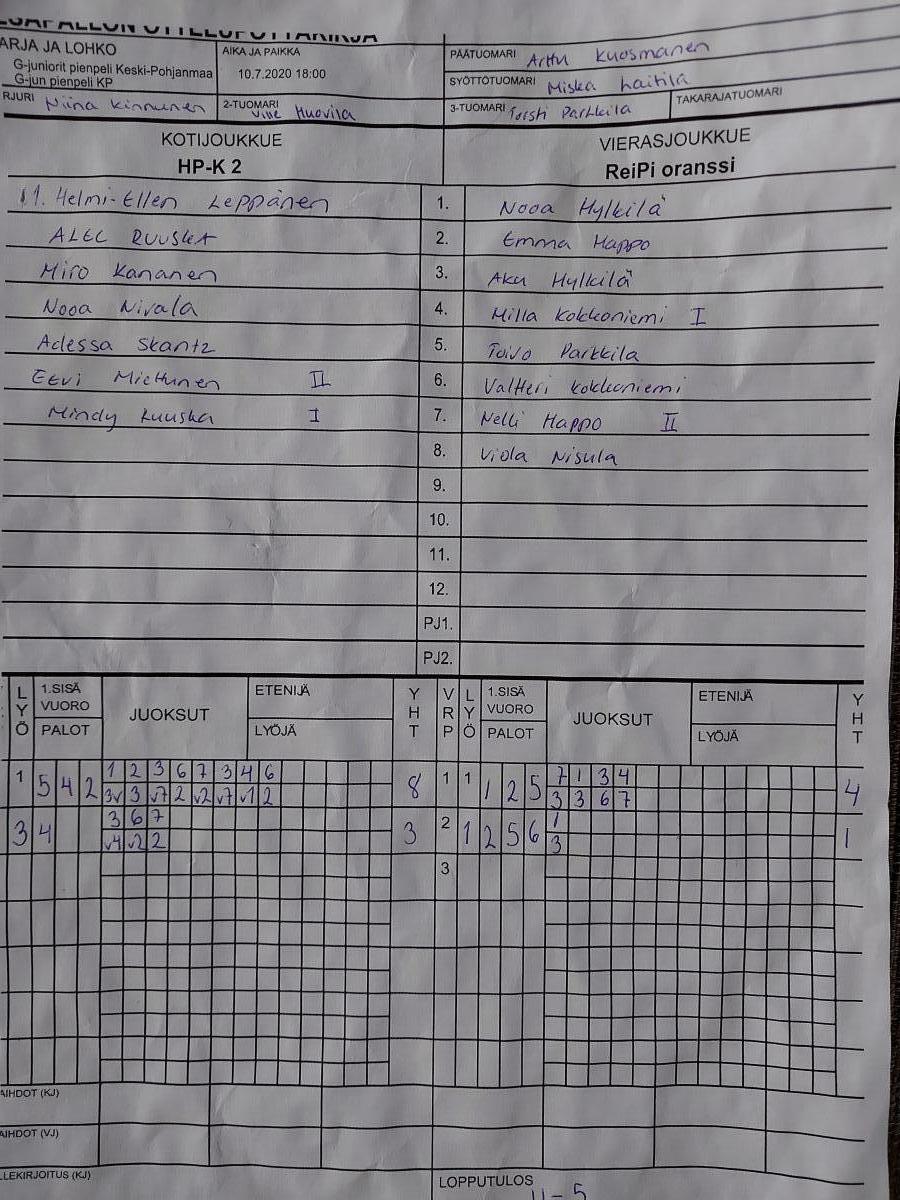 ARJA JA LOHKO
G-juniorit pienpeli Keski-Pohjanmaa
G-jun pienpeli KP
AIKA JA PAIKKA
10.7.2020 18:00
PÄÄTUOMARI Arttu Kuosmanen
SYÖTTÖTUOMARI Miska Haitila
RJURI Niina Kinnunen
2-TUOMARI Ville Huovila
3-TUOMARI Torsti Parkkila
TAKARAJATUOMARI
KOTIJOUKKUE
HP-K 2
VIERASJOUKKUE
ReiPi oranssi
11. Helmi-Ellen Leppänen 1. Nooa Hylkilä
ALEC RUUSKA 2. Emma Happo
Miro Kananen 3. Aku Hylkilä
Nooa Nivala 4. Milla Kokkoniemi I
Adessa Skantz 5. Toivo Parkkila
Eevi Miettunen II 6. Valtteri Kokkoniemi
Mindy Ruuska I 7. Nelli Happo II
8. Viola Nisula
9.
10.
11.
12.
PJ1.
PJ2.
LYÖ 1.SISÄ VUORO PALOT JUOKSUT ETENIJÄ LYÖJÄ YHT VRP LYÖ 1.SISÄ VUORO PALOT JUOKSUT ETENIJÄ LYÖJÄ YHT
1 5 4 2 1 2 3 6 7 3 4 6 8 1 1 1 2 5 7 1 3 4 4
3v 3 v7 2 v2 v7 v1 2 3 3 6 7
3 4 3 6 7 3 2 1 2 5 6 1 1
v4 v2 2 3
3
AIHDOT (KJ)
AIHDOT (VJ)
LLEKIRJOITUS (KJ)
LOPPUTULOS
11-5